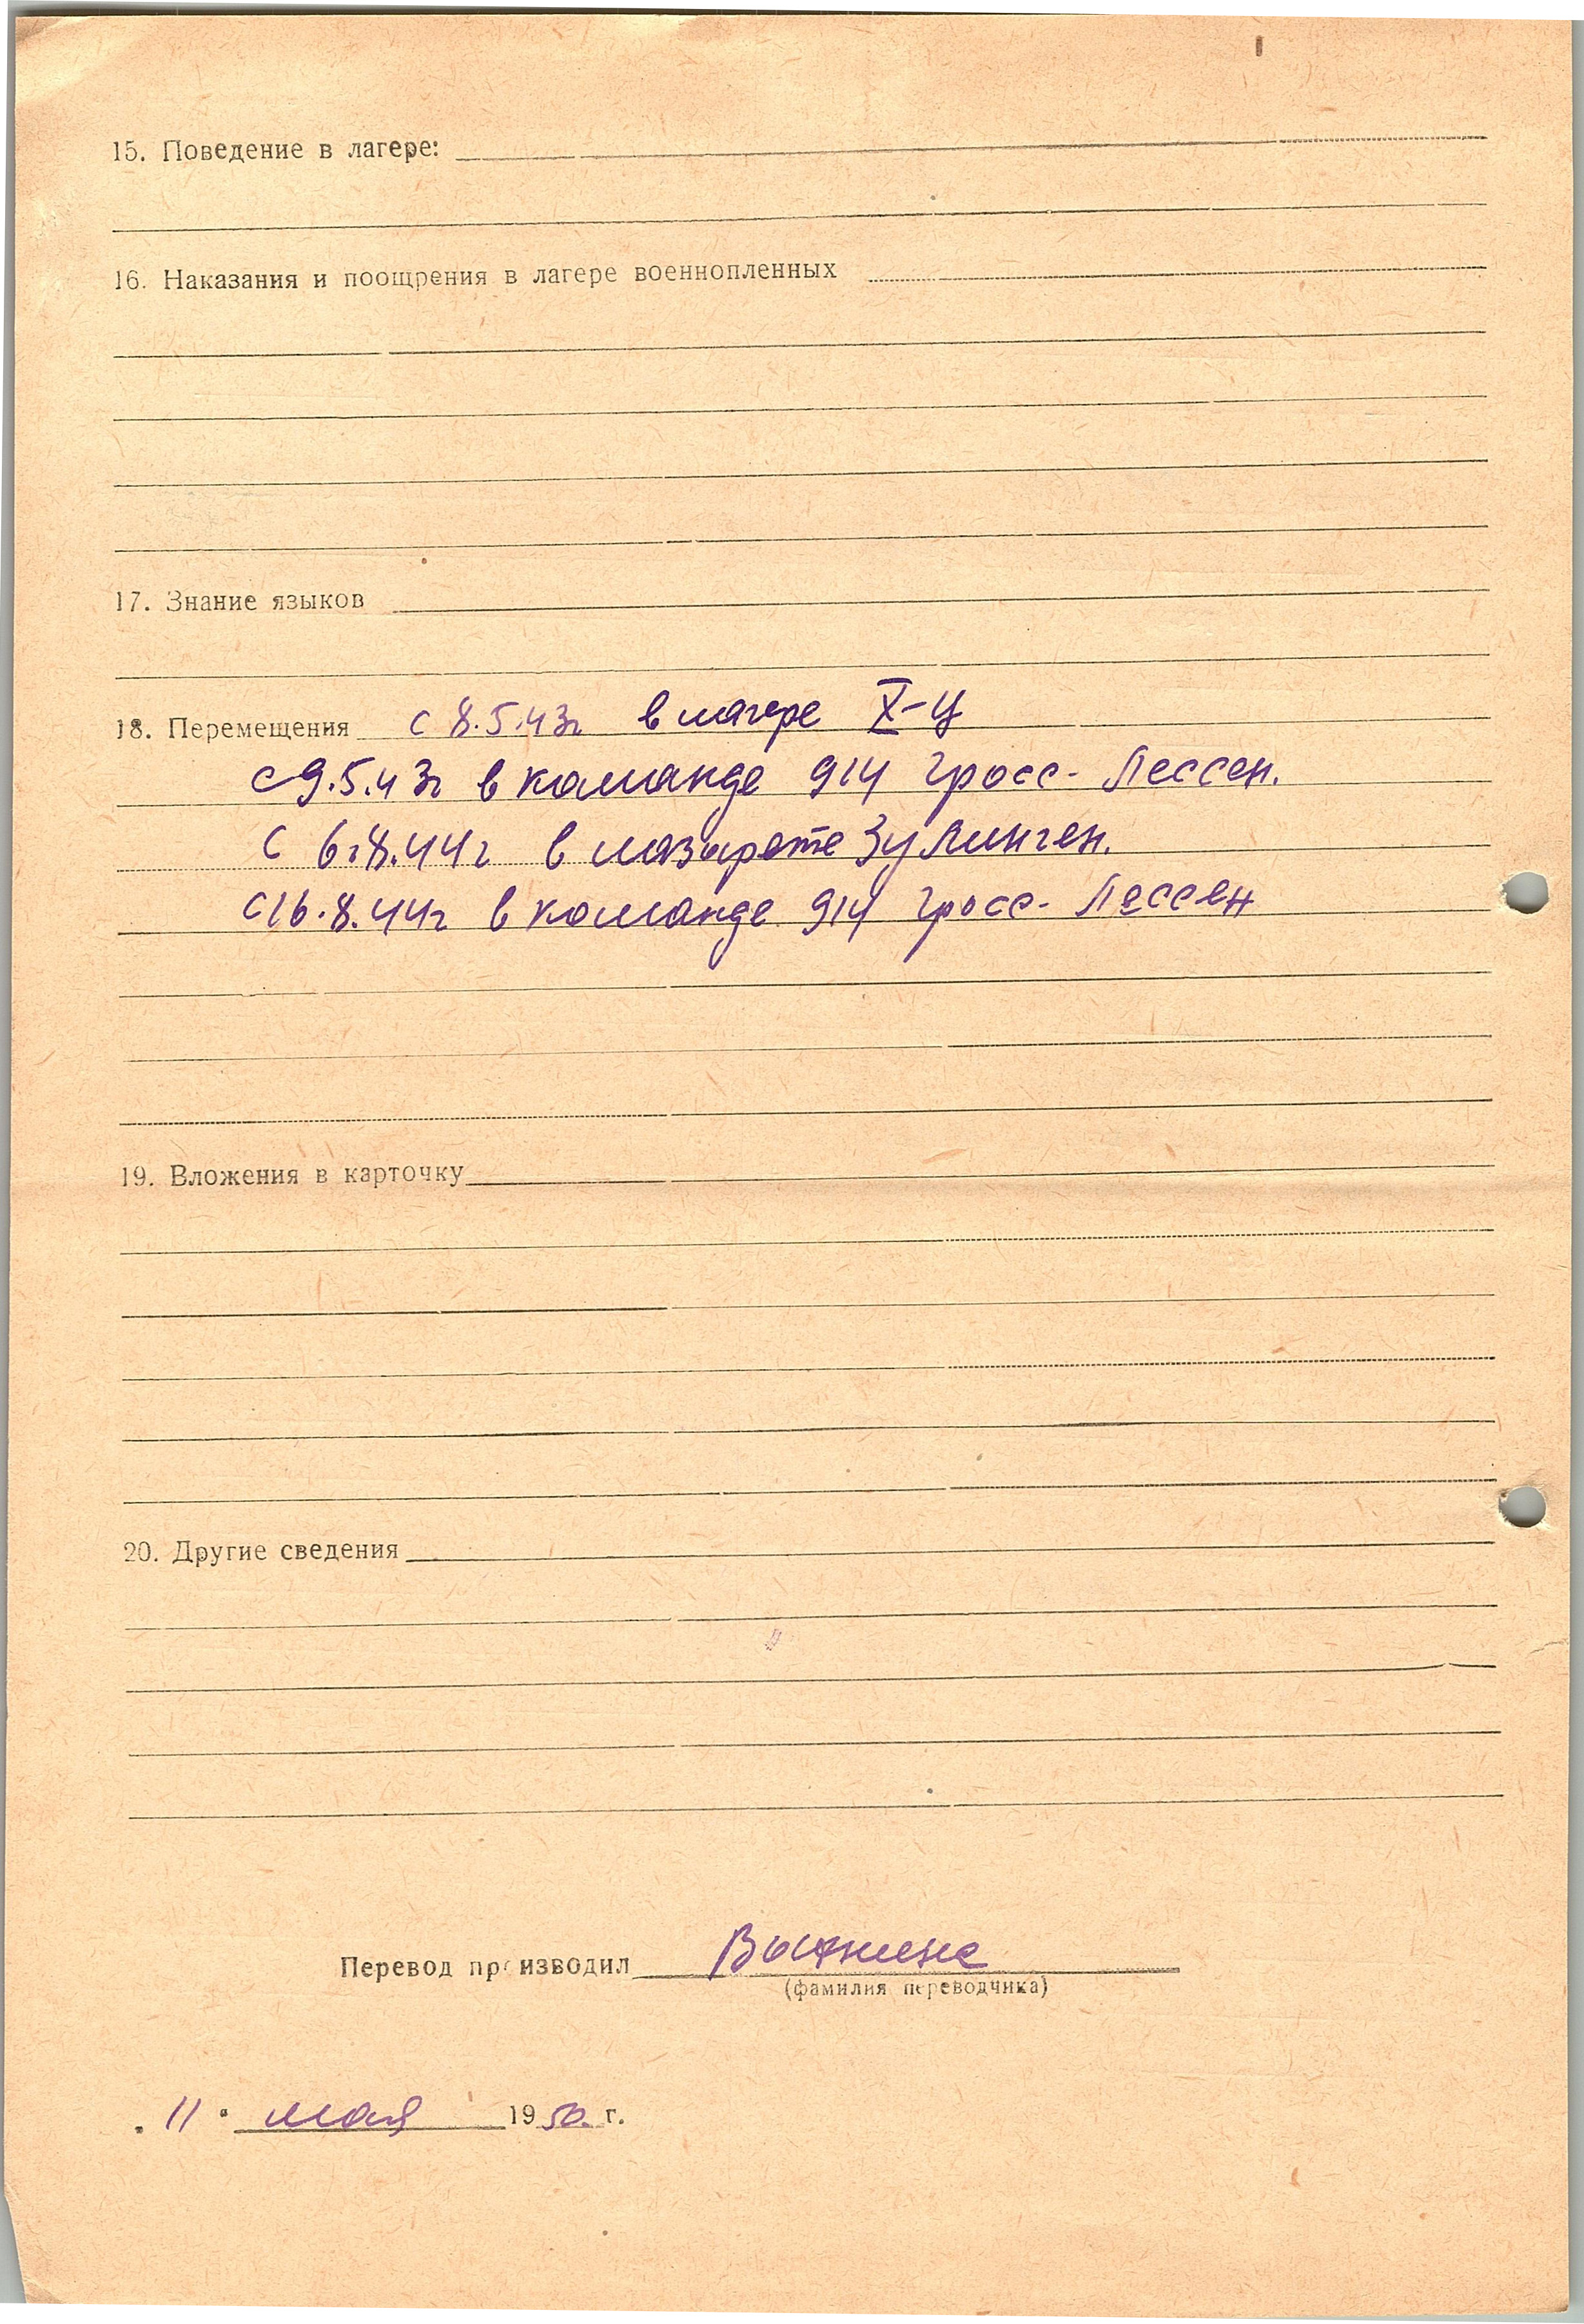 15. Поведение в лагере:
16. Наказания и поощрения в лагере военнопленных
17. Знание языков
18. Перемещения с 8.5.43г в лагере X-Ц
с 9.5.43г в команде 914 Гросс-Лессен.
с 6.8.44г в лазарете Зулинген.
с 16.8.44г в команде 914 Гросс-Лессен
19. Вложения в карточку
20. Другие сведения
Перевод производил
(фамилия переводчика)
"11" мая 1950 г.